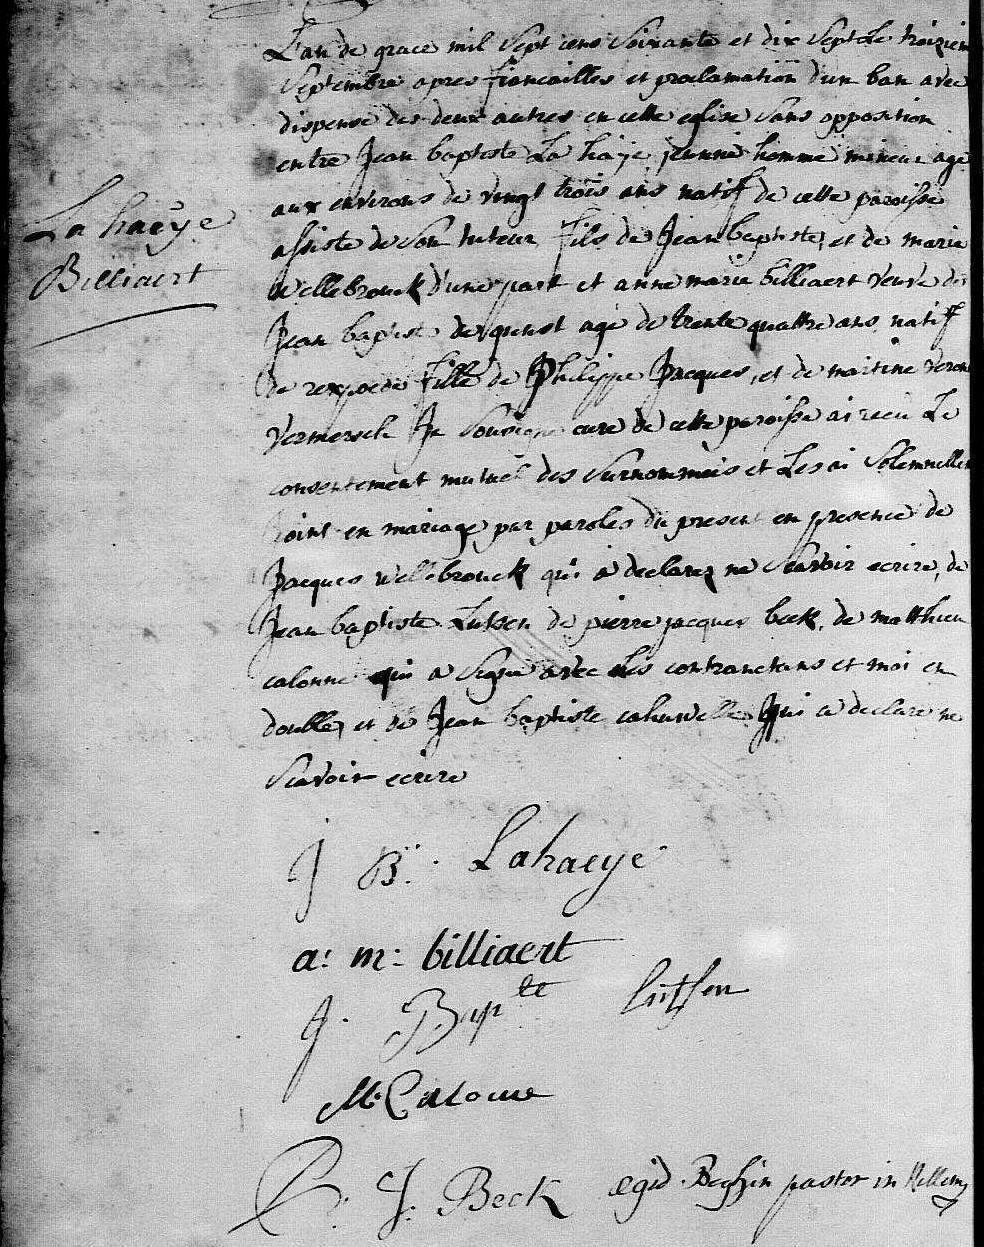 L'an de grace mil Sept cens Soixante et dix Sept Le troizieme
Septembre apres fiancailles et proclamation d'un ban avec
dispense des deux autres en cette eglise Sans opposition
entre Jean baptiste La haeje jeunne homme mineur agé
aux environs de vingt trois ans natif de cette paroisse
assisté de Son tuteur fils de Jean baptiste, et de marie
Wellebrouck d'une part et anne marie billiaert veuve de
Jean baptiste de quenst agé de trente quattre ans natif
de rexpoede fille de Philippe Jacques, et de martine
Vermersch Je Soussigné curé de cette paroisse ai recu Le
consentement mutuel des Surnommés et Les ai Solemnellem
Joint en mariage par paroles du present en presence de
Jacques wellebrouck qui a declarez ne Scavoir ecrire, de
Jean baptiste Lutsen de pierre jacques beck, de matthieu
calonne qui a Signé avec Les contranctans et moi en
double, et de Jean baptiste cahuwelle qui a declaré ne
Scavoir ecrire
La haeÿe
Billiaert
J B. Lahaeye
a: m: billiaert
J. Bapte lutsen
M. Calonne
P. J. Beck ægid. Beghin pastor in